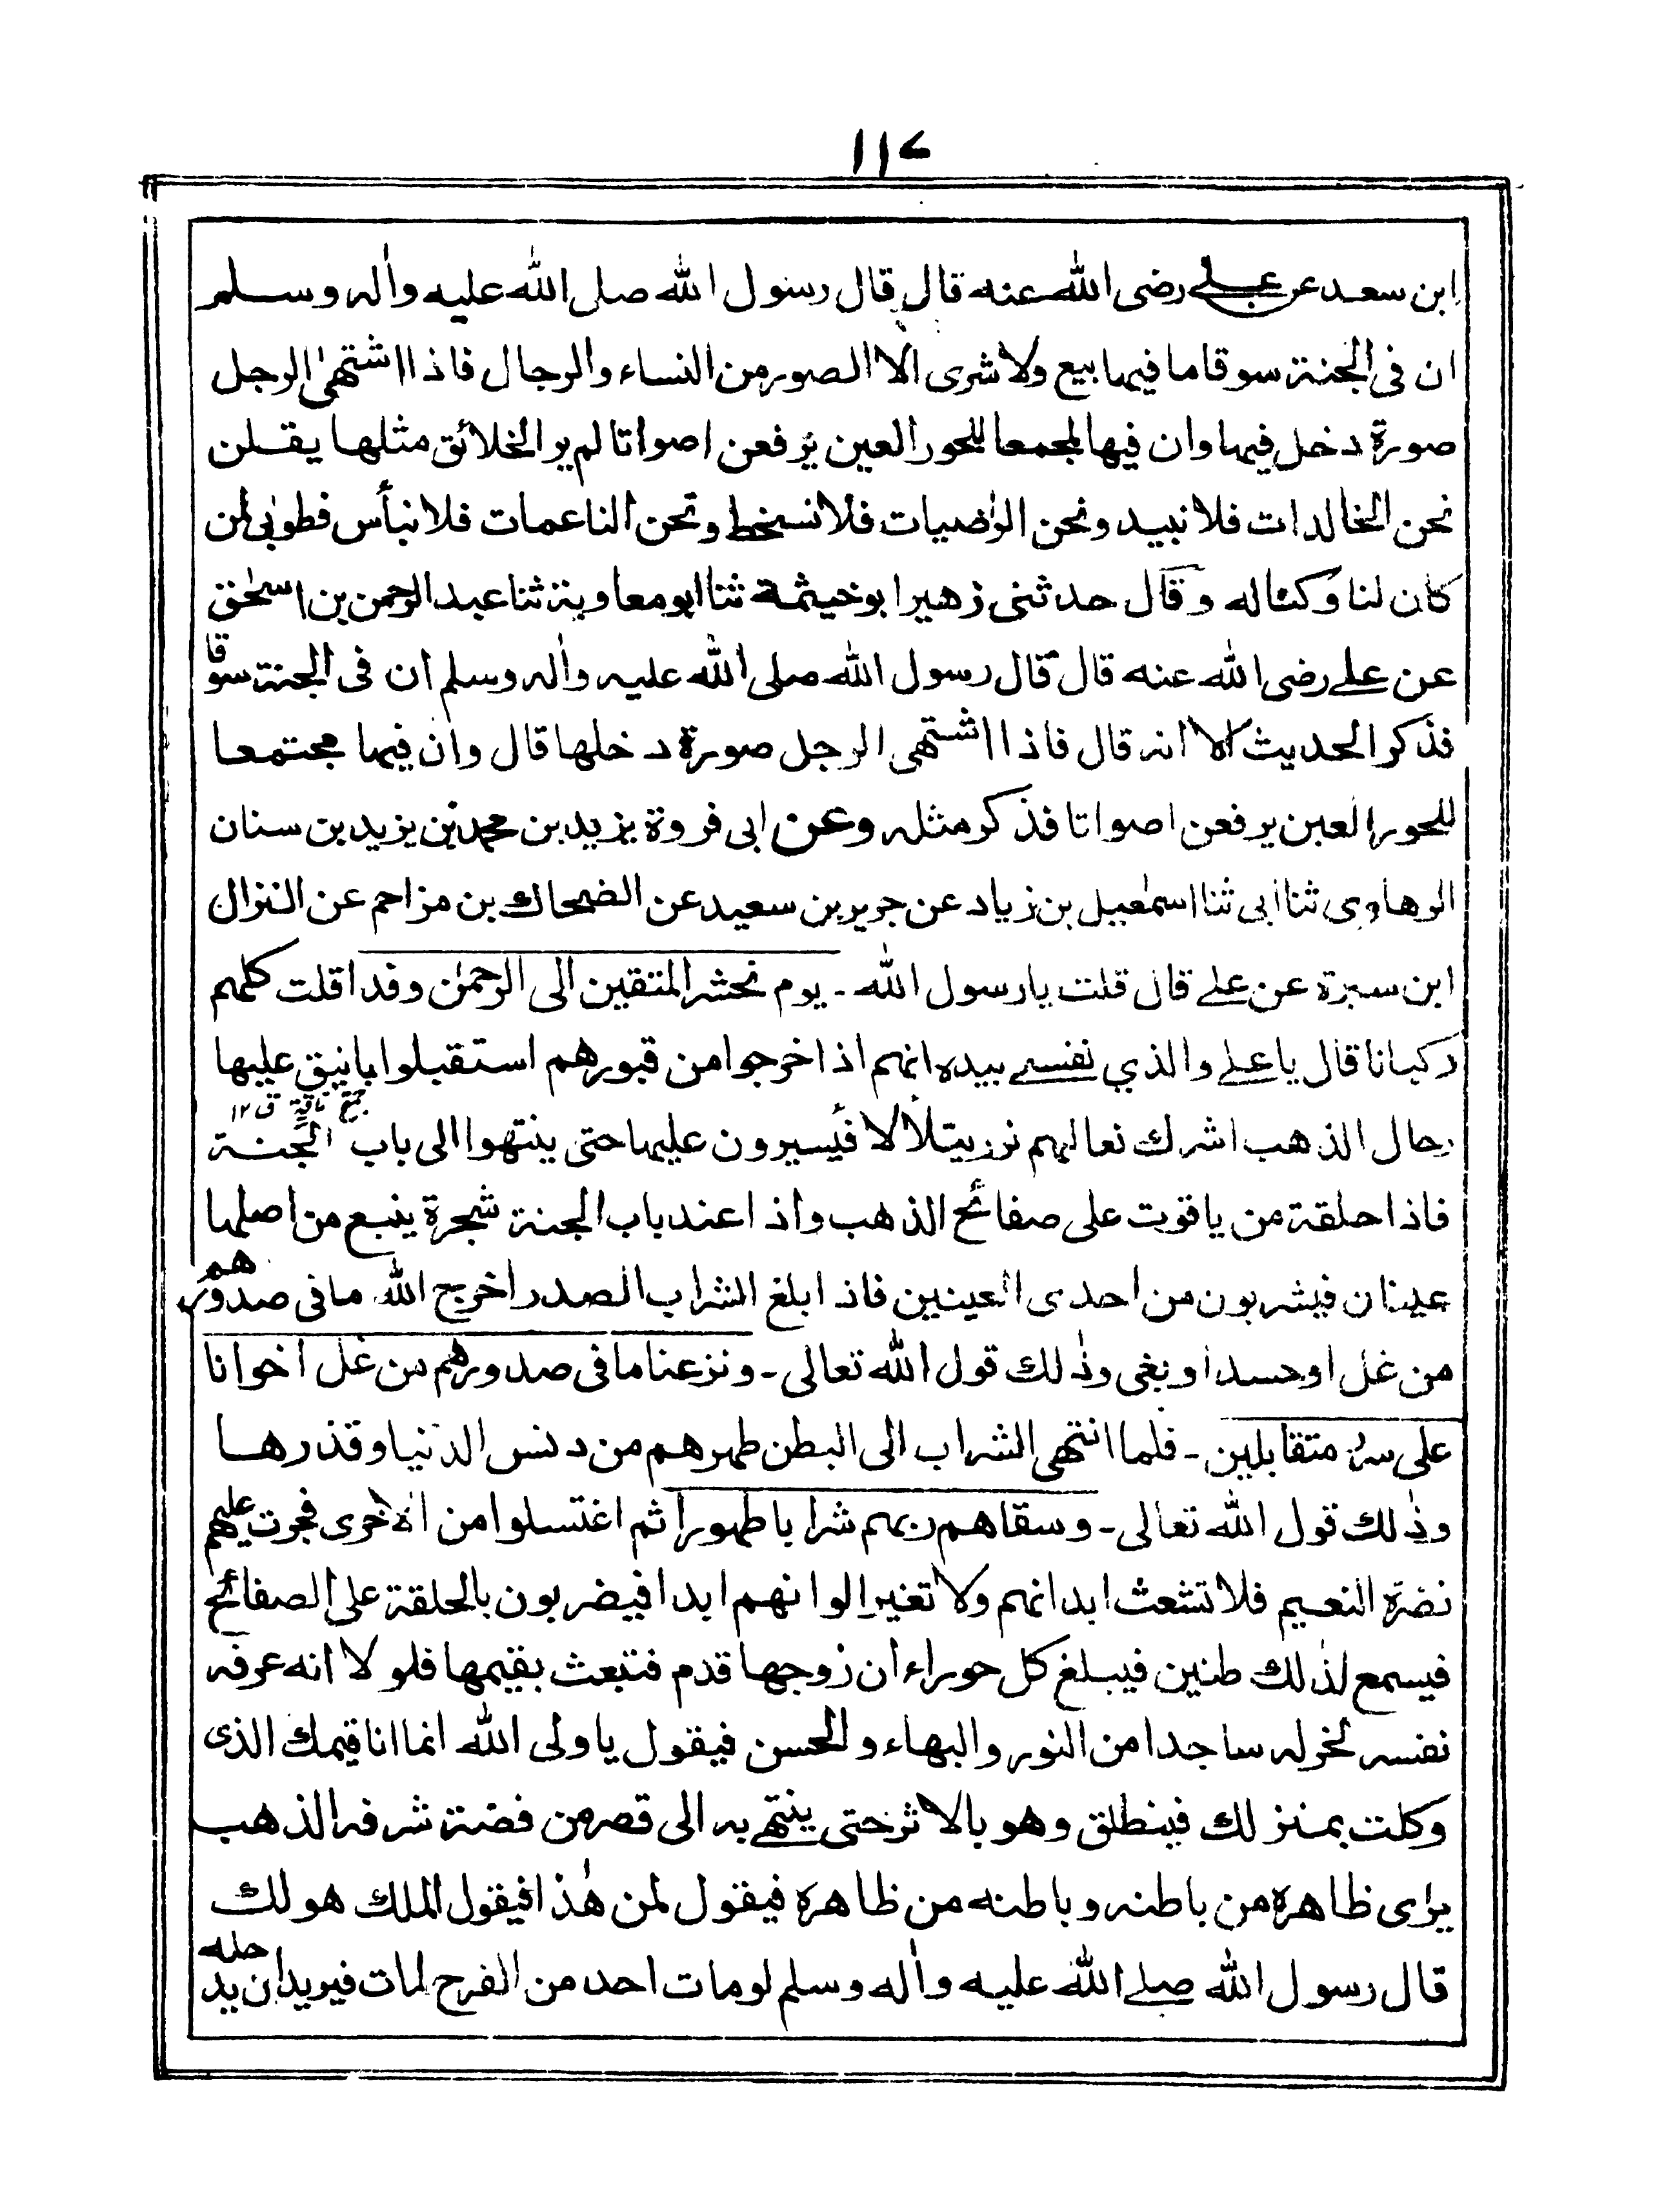 ۱۱۷
ابن سعد عن علے رضى الله عنه قال قال رسول الله صلى الله عليه واٰله وسلم
ان فى الجنة سوقا ما فيها بيع ولا شرى الا الصور من النساء والرجال فاذا اشتهى الرجل
صورة دخل فيها وان فيها لمجمعا للحور العين يرفعن اصواتا لم ير الخلائق مثلها يقلن
نحن الخالدات فلا نبيد ونحن الراضيات فلا نسخط ونحن الناعمات فلا نبأس فطوبى لمن
كان لنا وكنا له وقال حدثنى زهير ابو خيثمة ثنا ابو معاوية ثنا عبد الرحمن بن اسحٰق
عن علے رضى الله عنه قال قال رسول الله صلى الله عليه واٰله وسلم ان فى الجنة سوقا
فذكر الحديث الا انه قال فاذا اشتهى الرجل صورة دخلها قال وان فيها مجتمعا
للحور العين يرفعن اصواتا فذكر مثله وعن ابى فروة يزيد بن محمد بن يزيد بن سنان
الرهاوى ثنا ابى ثنا اسمٰعيل بن زياد عن جرير بن سعيد عن الضحاك بن مزاحم عن النزال
ابن سبرة عن علے قال قلت يا رسول الله ـ يوم نحشر المتقين الى الرحمٰن وفدا قلت كلهم
ركبانا قال يا علے والذي نفسے بيده انهم اذا خرجوا من قبورهم استقبلوا بانيق عليها
جمع ناقة ق ۱۲
رحال الذهب اشرك نعالهم نور يتلالا فيسيرون عليها حتى ينتهوا الى باب الجنة
فاذا حلقة من ياقوت على صفائح الذهب واذا عند باب الجنة شجرة ينبع من اصلها
عينان فيشربون من احدى العينين فاذا بلغ الشراب الصدر اخرج الله ما فى صدورهم
من غل او حسد او بغى وذٰلك قول الله تعالى ـ ونزعنا ما فى صدورهم من غل اخوانا
على سرر متقابلين ـ فلما انتهى الشراب الى البطن طهرهم من دنس الدنيا وقذرها
وذٰلك قول الله تعالى ـ وسقاهم ربهم شرابا طهورا ثم اغتسلوا من الاخرى فجرت عليهم
نضرة النعيم فلا تشعث ابدانهم ولا تغير الوانهم ابدا فيضربون بالحلقة على الصفائح
فيسمع لذٰلك طنين فيبلغ كل حوراء ان زوجها قدم فتبعث بقيمها فلو لا انه عرفه
نفسه لخر له ساجدا من النور والبهاء والحسن فيقول يا ولى الله انما انا قيمك الذى
وكلت بمنزلك فينطلق وهو بالاثر حتى ينتهے به الى قصر من فضة شرفه الذهب
يرى ظاهره من باطنه وباطنه من ظاهره فيقول لمن هٰذا فيقول الملك هو لك
قال رسول الله صلے الله عليه واٰله وسلم لو مات احد من الفرح لمات فيريد ان يدخله